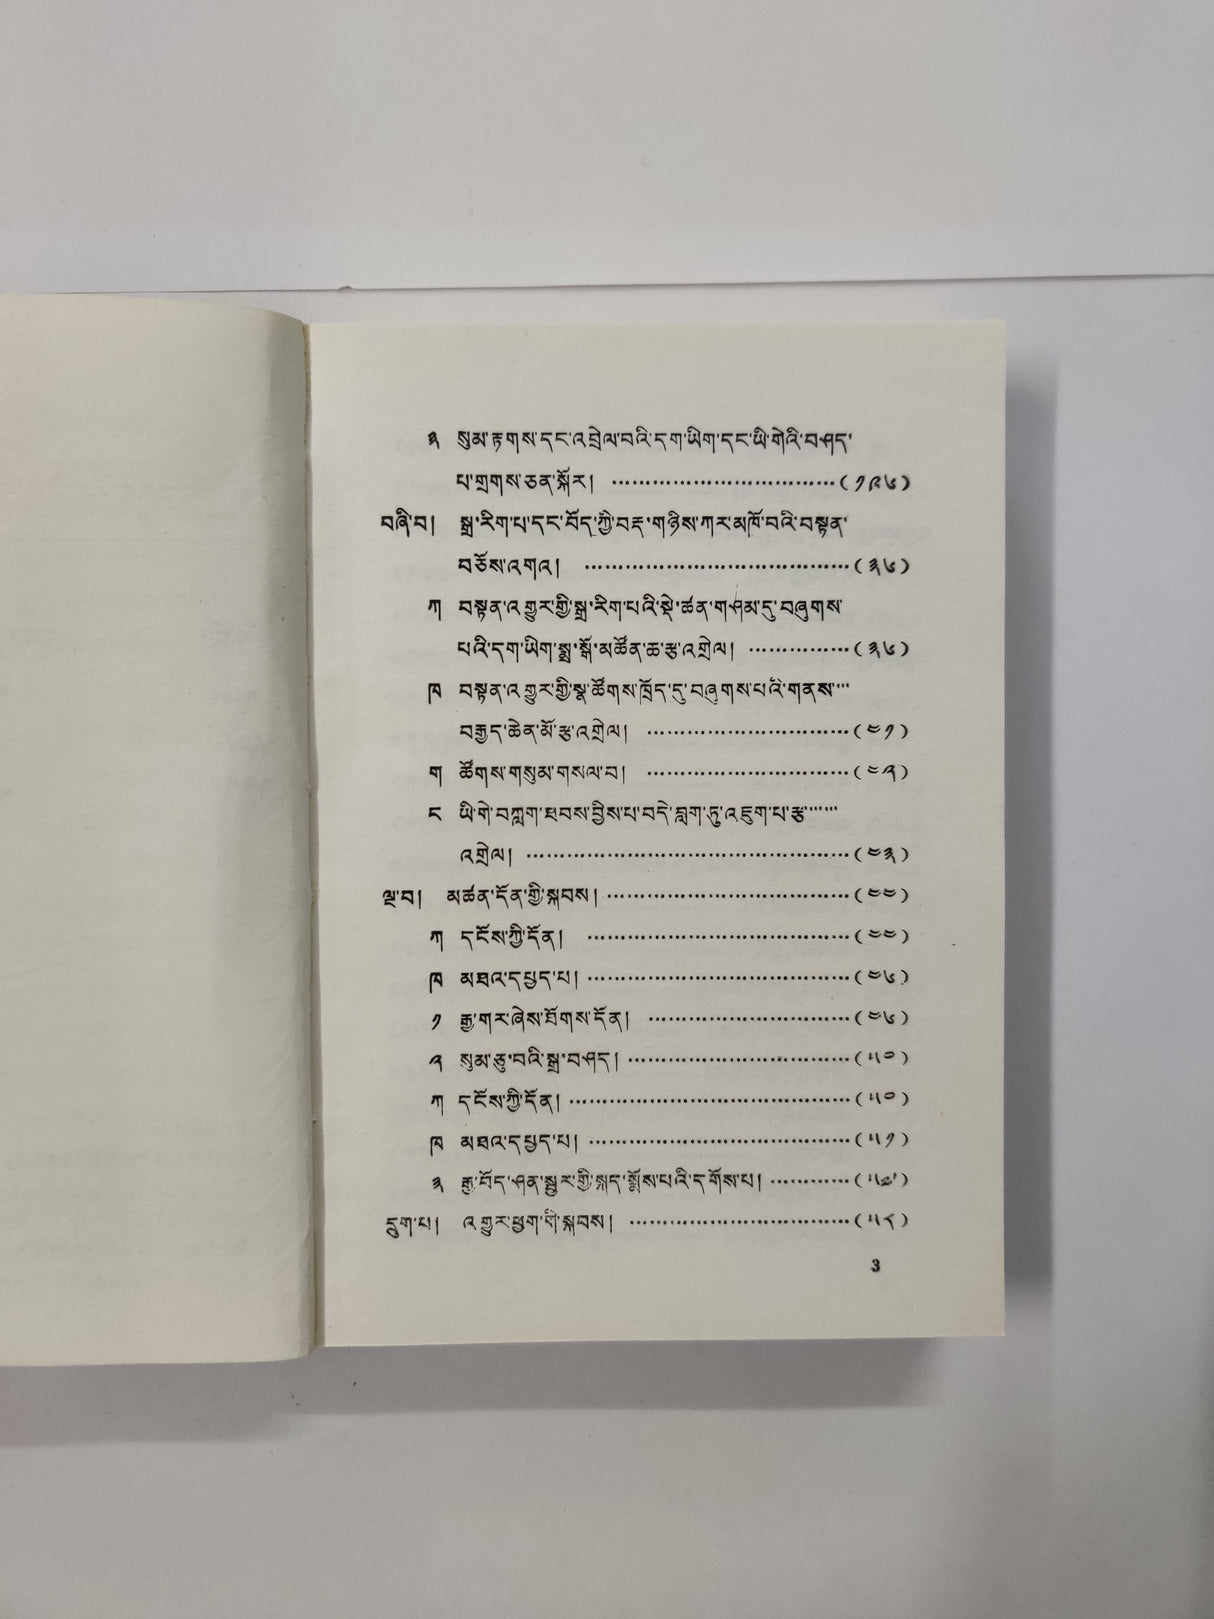 ༣ སུམ་རྟགས་དང་འབྲེལ་བའི་དག་ཡིག་དང་ཡི་གེའི་བཤད་
པ་གྲགས་ཅན་སྐོར། ……………………………(༡༩༦)
བཞི་བ། སྒྲ་རིག་པ་དང་བོད་ཀྱི་བརྡ་གཉིས་ཀར་མཁོ་བའི་བསྟན་
བཅོས་འགའ། …………………………………(༣༦)
ཀ བསྟན་འགྱུར་གྱི་སྒྲ་རིག་པའི་སྡེ་ཚན་གཤམ་དུ་བཞུགས་
པའི་དག་ཡིག་སྨྲ་སྒོ་མཚོན་ཆ་རྩ་འགྲེལ། ……………(༣༦)
ཁ བསྟན་འགྱུར་གྱི་སྣ་ཚོགས་ཁྲོད་དུ་བཞུགས་པའི་གནས་…
བརྒྱད་ཆེན་མོ་རྩ་འགྲེལ། …………………………(༤༡)
ག ཚོགས་གསུམ་གསལ་བ། …………………………(༤༢)
ང ཡི་གེ་བཀླག་ཐབས་བྱིས་པ་བདེ་བླག་ཏུ་འཇུག་པ་རྩ་……
འགྲེལ། …………………………………………(༤༣)
ལྔ་བ། མཚན་དོན་གྱི་སྐབས། ………………………………(༤༤)
ཀ དངོས་ཀྱི་དོན། …………………………………(༤༤)
ཁ མཐའ་དཔྱད་པ། …………………………………(༤༦)
༡ རྒྱ་གར་ཞེས་ཐོགས་དོན། …………………………(༤༦)
༢ སུམ་ཅུ་བའི་སྒྲ་བཤད། ……………………………(༥༠)
ཀ དངོས་ཀྱི་དོན། ……………………………………(༥༠)
ཁ མཐའ་དཔྱད་པ། …………………………………(༥༡)
༣ རྒྱ་བོད་ཤན་སྦྱར་གྱི་སྐད་སྨོས་པའི་དགོས་པ། …………(༥༧)
དྲུག་པ། འགྱུར་ཕྱག་གི་སྐབས། ……………………………(༥༨)
3